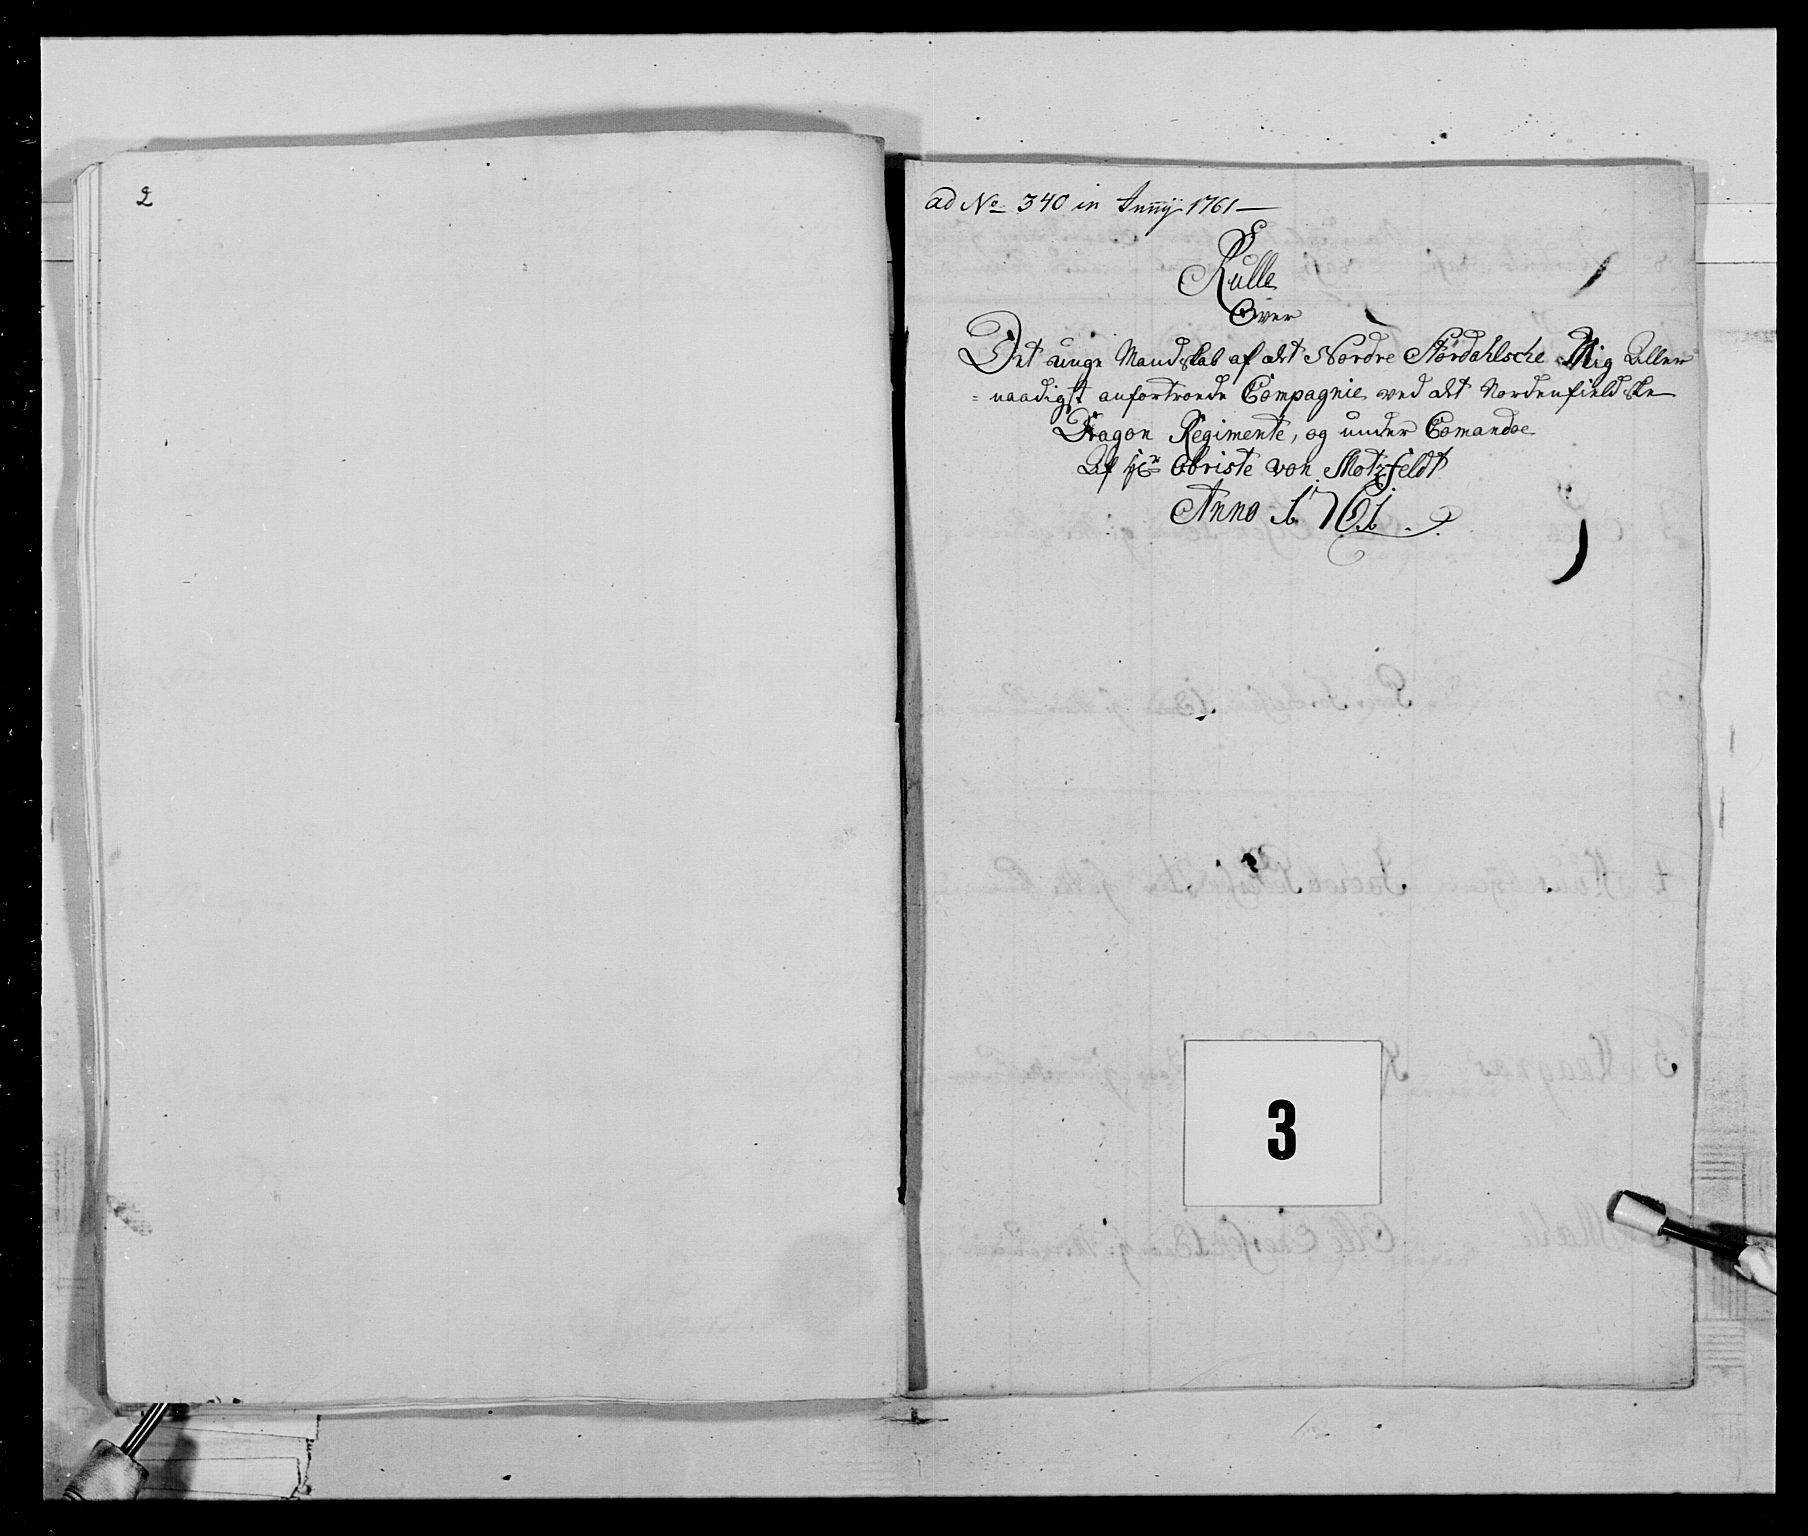 2
ad No 340 in Junij 1761
Rulle
Over
Det unge Mandskab af det Nordre Størdahlsche Mig Aller
= naadigst anfortroede Compagnie ved det Nordenfieldske
Dragon Regimente, og under Comando
Af Hr Obriste von Motzfeldt
Anno 1761.
3